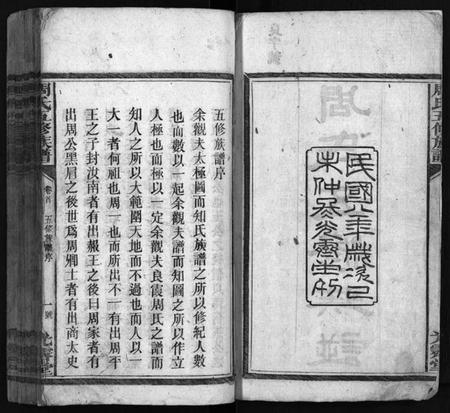 周氏五修族譜
民國八年歲次己
未仲冬光霽堂刊
五修族譜序
余觀夫太極圖而知氏族譜之所以修紀人數
也而數以一起余觀夫譜而知圖之所以作立
人極也而極以一定余觀夫良霞周氏之譜而
知人之所以大範圍天地而不過也而人以一
大一者何祖也周一也而所出不一有出周平
王之子封汝南者有出赧王之後曰周家者有
出周公黑肩之後世爲周卿士者有出商太史
周氏五修族譜
卷首
五修族譜序
一號
光霽堂